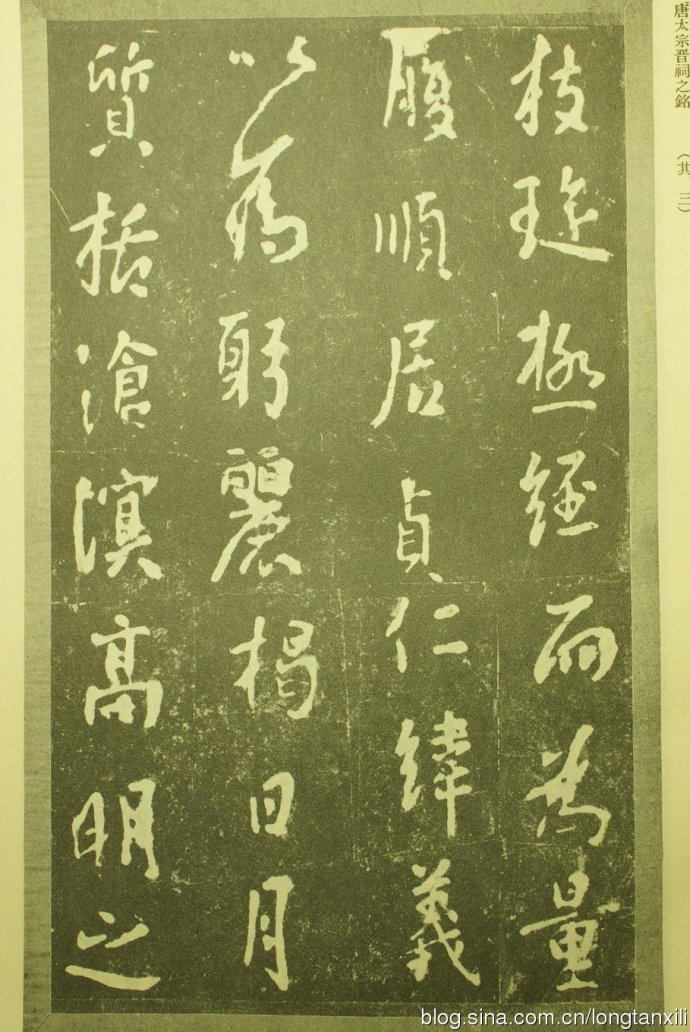 唐太宗晋祠之銘 (其三)
枝璇極經而為量
履順居貞仁緯義
以為躬麗揭日月
質括滄溟高明之
blog.sina.com.cn/longtanxili